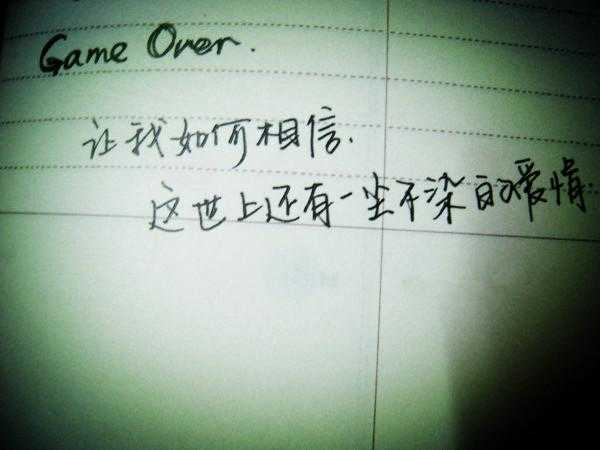 Game Over.
让我如何相信.
这世上还有一尘不染的爱情.